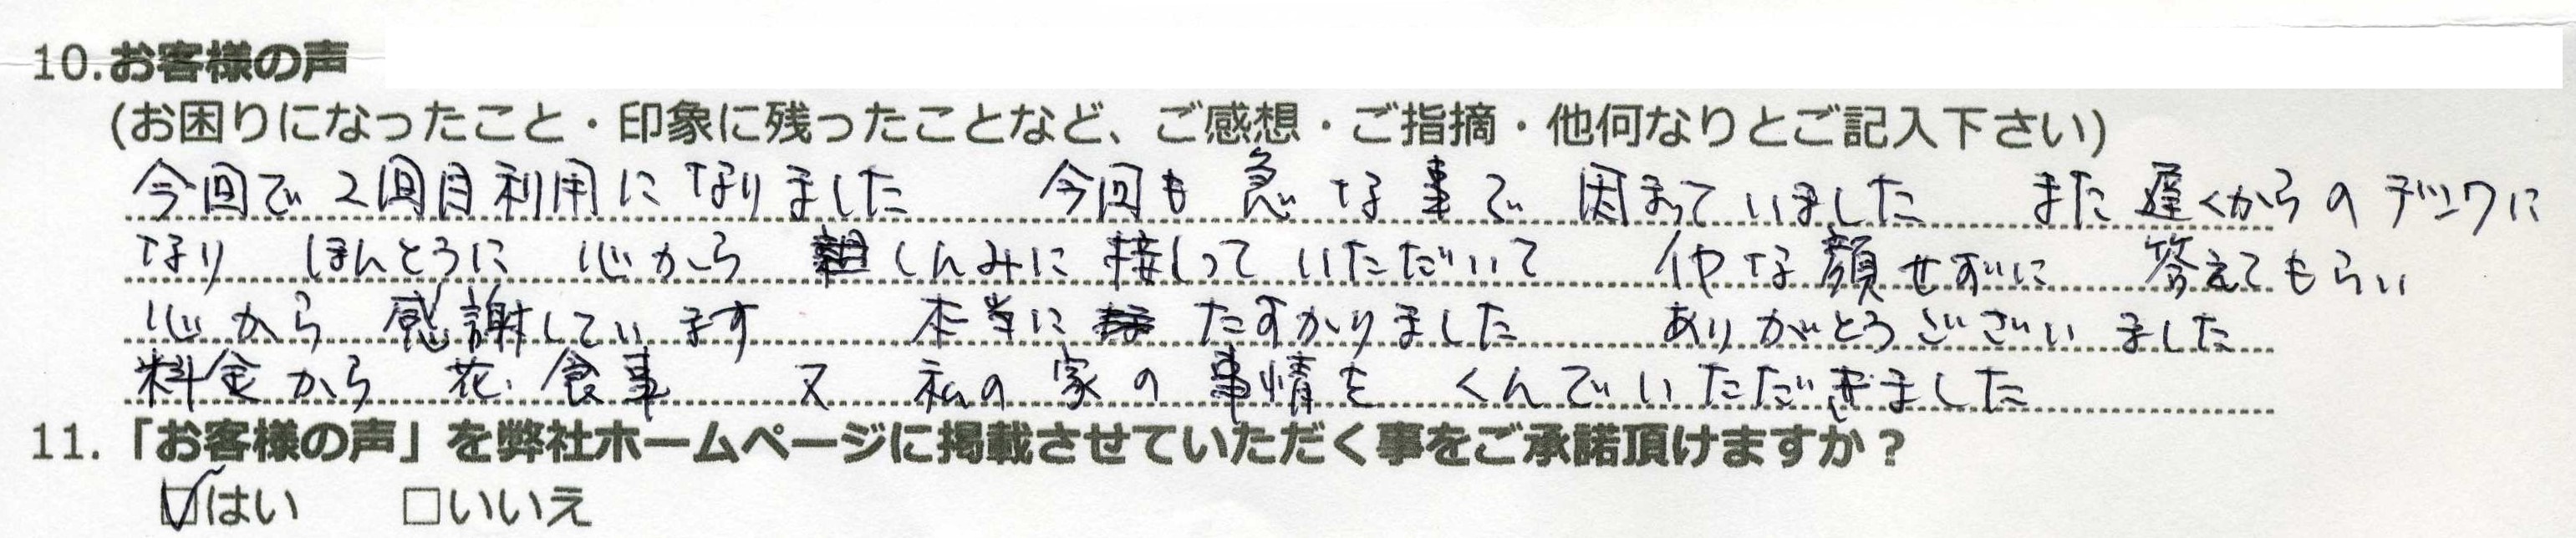 10.お客様の声
(お困りになったこと・印象に残ったことなど、ご感想・ご指摘・他何なりとご記入下さい)
今回で2回目利用になりました 今回も急な事で困まっていました また遅くからのデンワに
なり ほんとうに 心から しんみに接しって いただいて イヤな顔せずに 答えてもらい
心から感謝しています 本当に たすかりました ありがとうございました
料金から 花、食事 又 私の家の事情を くんでいただきました
11.「お客様の声」を弊社ホームページに掲載させていただく事をご承諾頂けますか？
☑はい □いいえ